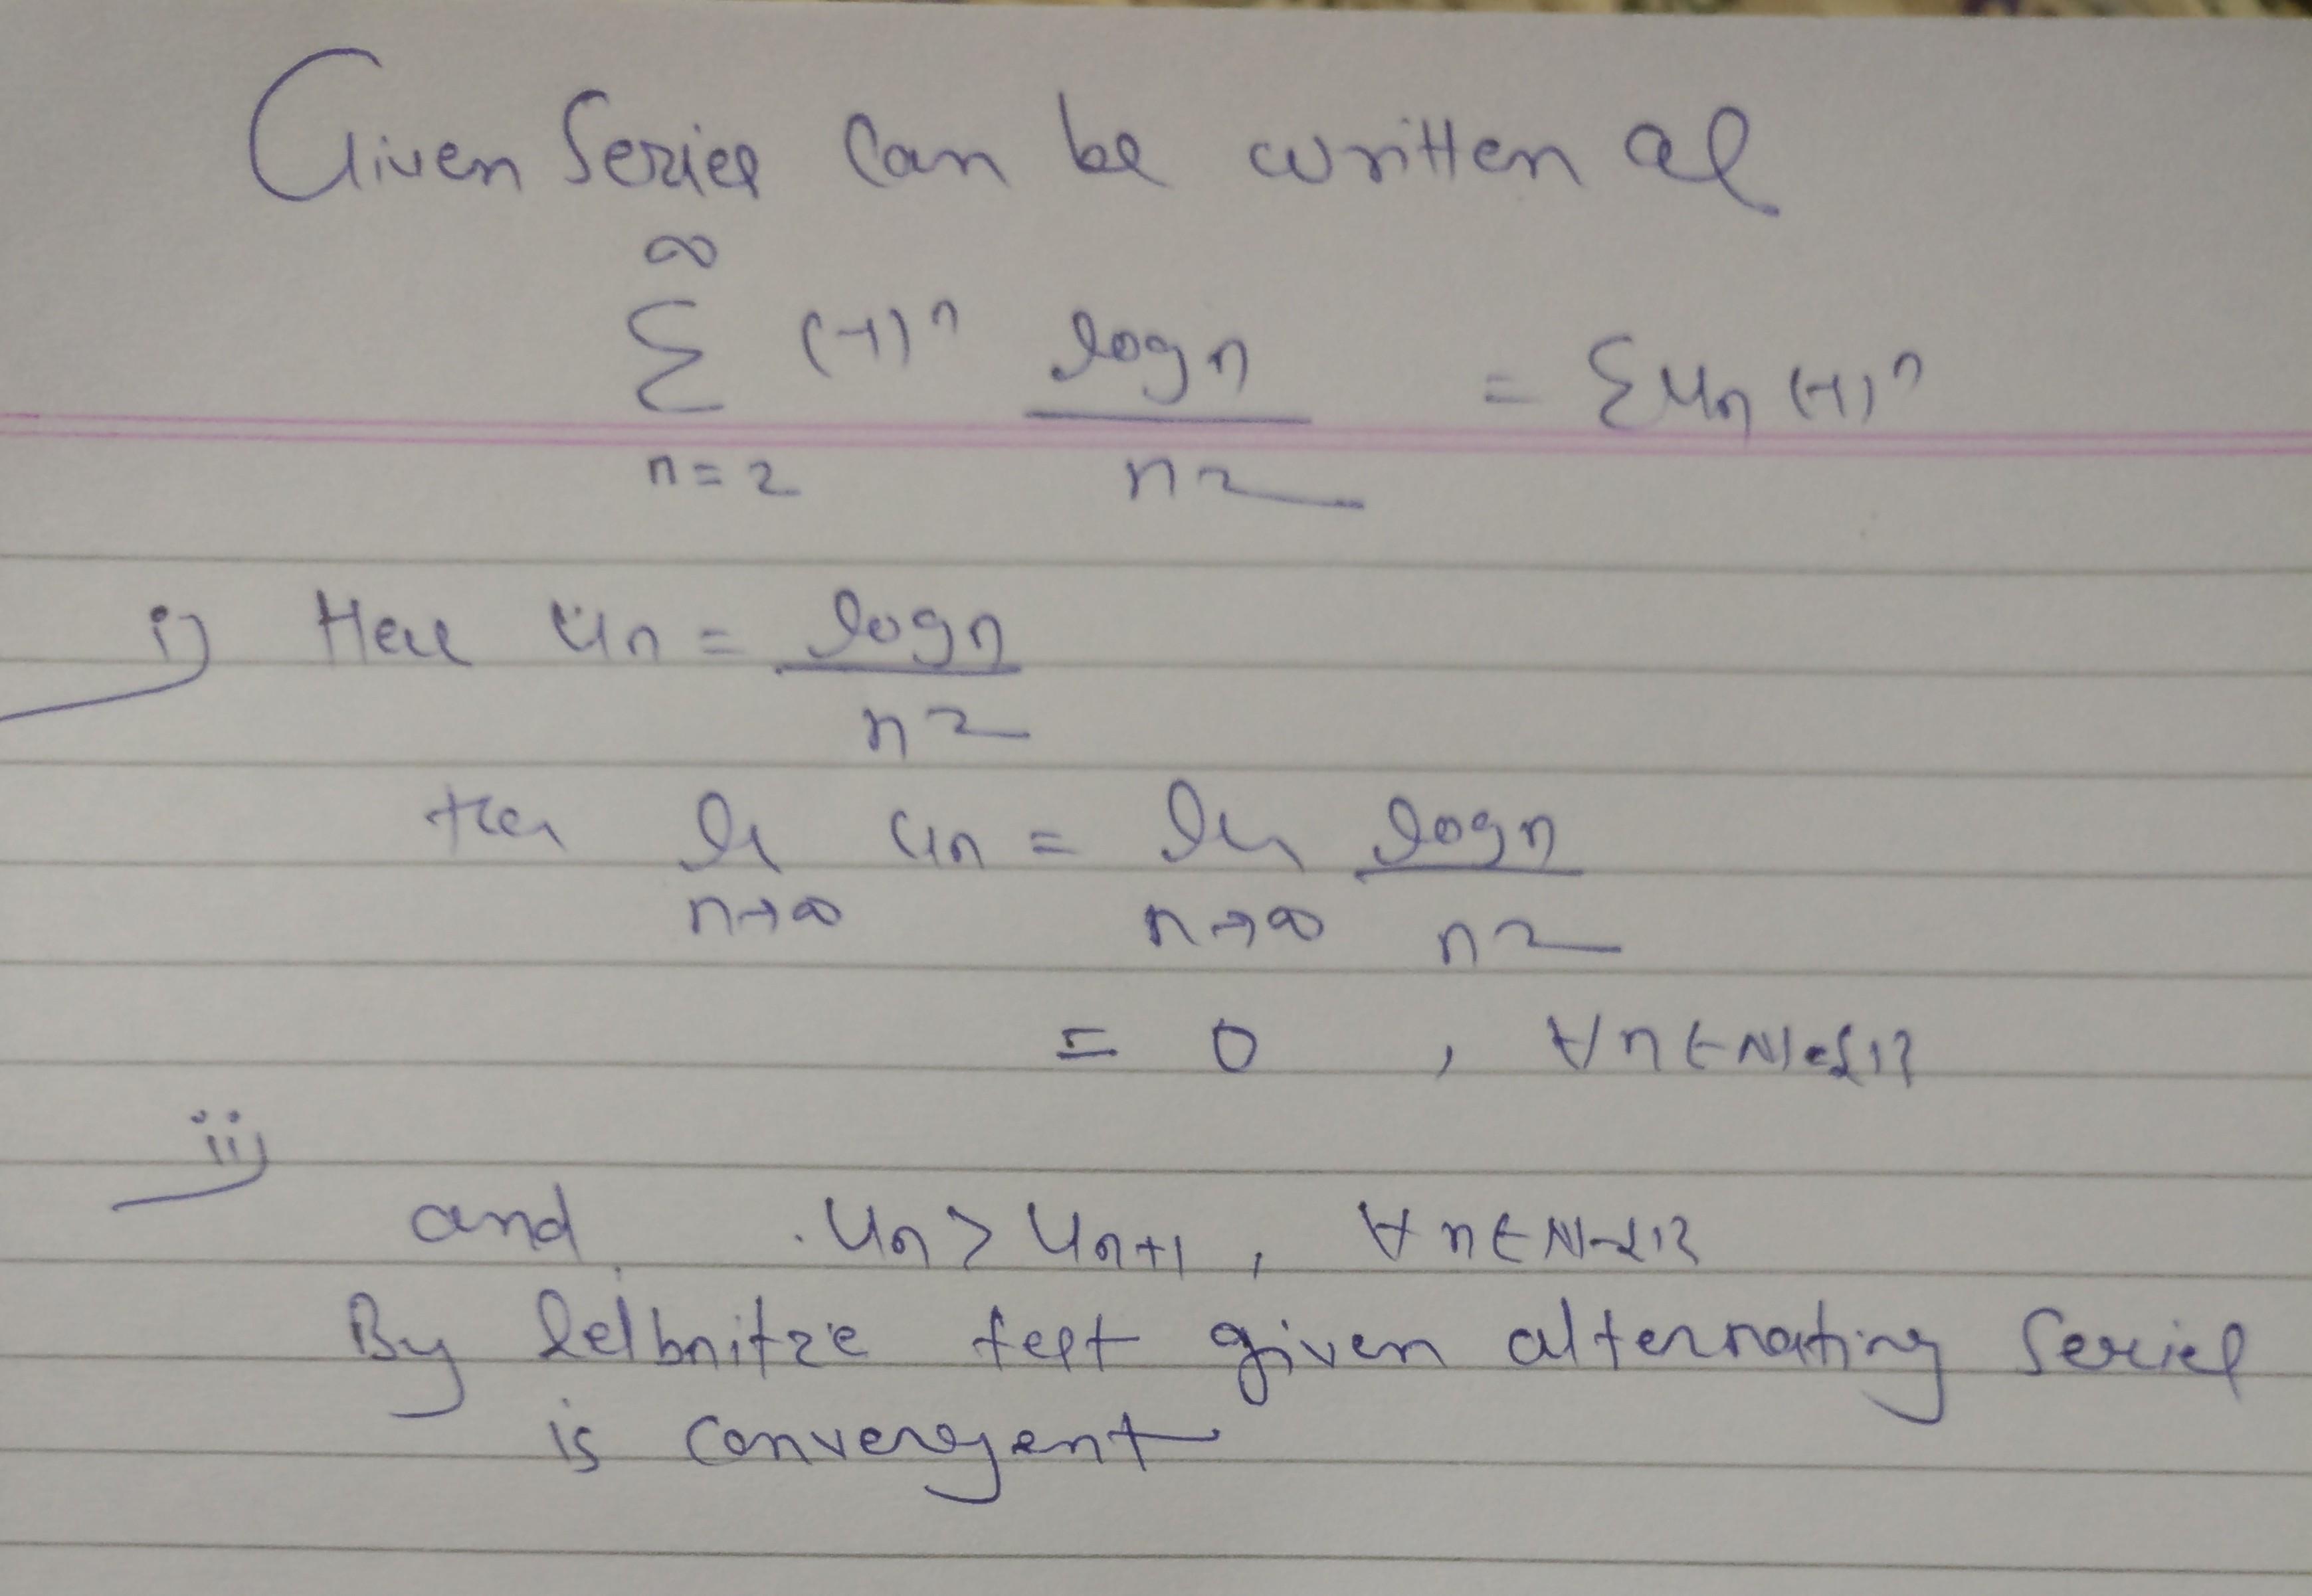 Given Series can be written as
∞
Σ (-1)^n log n / n^2 = Σ u_n (-1)^n
n=2
i) Here u_n = log n / n^2
then lim n→∞ u_n = lim n→∞ log n / n^2
= 0 , ∀ n ∈ N-{1}
ii)
and u_n > u_n+1 , ∀ n ∈ N-{1}
By Leibnitze test given alternating series
is convergent